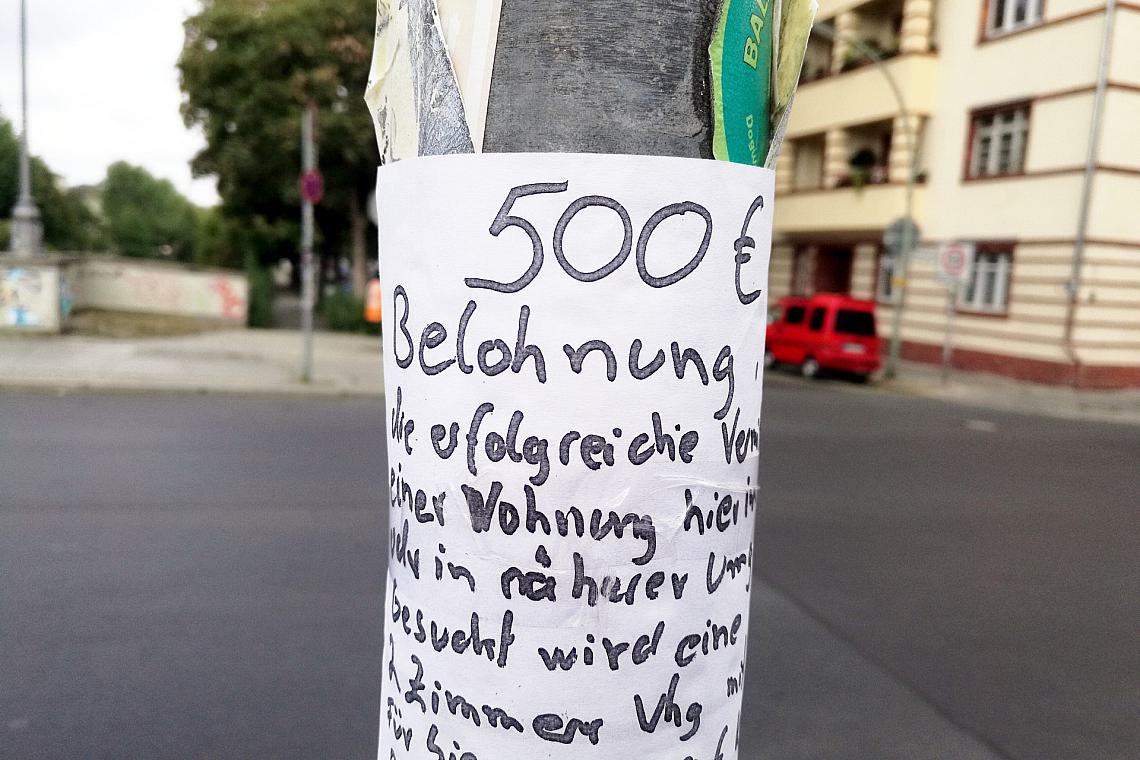 BAD
500 €
Belohnung
die erfolgreiche
einer Wohnung hier
in näherer Umg
Gesucht wird eine
2 Zimmer Whg
Für Sie